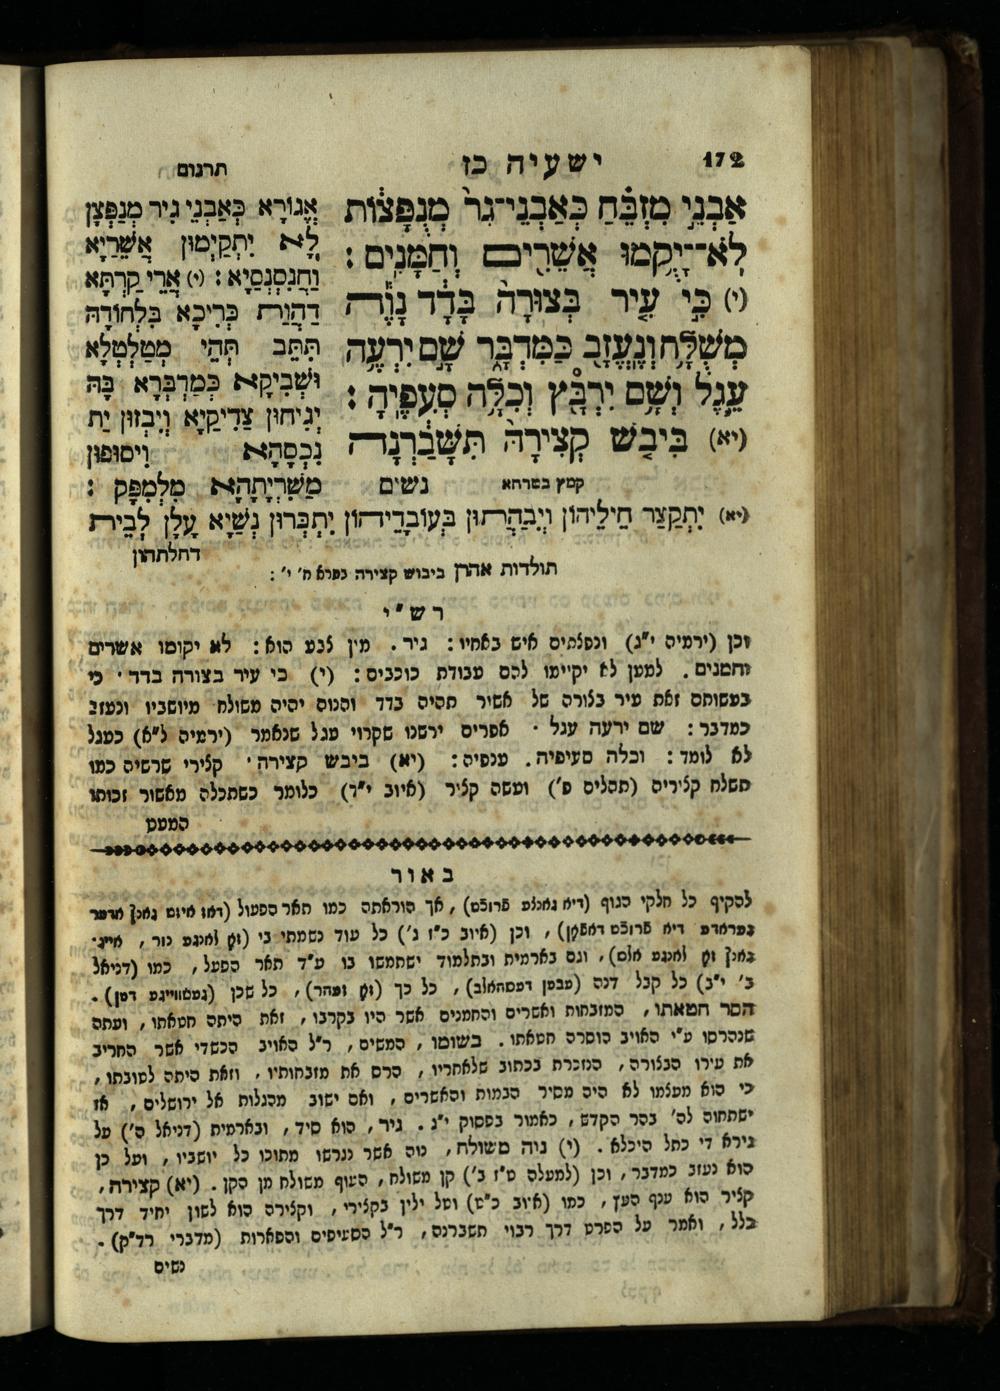 172
ישעיה כז
תרגום
אַבְנֵ֣י מִזְבֵּ֗חַ כְּאַבְנֵי־גִר֙ מְנֻפָּצ֔וֹת
לֹֽא־יָקֻ֥מוּ אֲשֵׁרִ֖ים וְחַמָּנִֽים׃
(י) כִּ֣י עִ֤יר בְּצוּרָה֙ בָּדָ֔ד נָוֶ֕ה
מְשֻׁלָּ֥ח וְנֶעֱזָ֖ב כַּמִּדְבָּ֑ר שָׁ֣ם יִרְעֶ֥ה
עֵ֛גֶל וְשָׁ֥ם יִרְבָּ֖ץ וְכִלָּ֥ה סְעִפֶֽיהָ׃
(יא) בִּיבֹ֤שׁ קְצִירָהּ֙ תִּשָּׁבַ֔רְנָה
קמץ בטרחא
נשים
אֱגוֹרָא כְּאַבְנֵי גִיר מְנַפְּצָן
לָא יִתְקַיְמוּן אֲשֵׁרַיָּא
וַחֲנִסְנְסַיָא׃ (י) אֲרֵי קַרְתָּא
דַהֲוַת כְּרִיכָא בִּלְחוֹדָהּ
תִּתֵּב תְּהֵי מְטַלְטְלָא
וּשְׁבִיקָא כְּמַדְבְּרָא בָּהּ
יְגִיחוּן צַדִיקַיָא וְיִבְזוּן יַת
נִכְסָהָא וִיסוּפוּן
מַשִׁרְיָתָהָא מִלְמִפָּק׃
(יא) יִתְקַצַר חֵילֵיהוֹן וְיִבַהֲתוּן בְּעוֹבָדֵיהוֹן יִתְּבְּרוּן נְשַׁיָא עָלָן לְבֵית
דחלתהון
תולדות אהרן ביבוש קצירה גפרא ח׳ י׳ :
רש״י
וכן (ירמיה י״ג) ונפצתים איש באחיו : גיר . מין צבע הוא : לא יקומו אשרים
וחמנים . למען לא יקיימו להם עבודת כוכבים : (י) כי עיר בצורה בדד · כי
בעשותם זאת עיר בצורה של אשיר תהיה בדד והנוה יהיה משולח מיושביו ונעזב
כמדבר : שם ירעה עגל · אפרים ירשנו שקרוי עגל שנאמר (ירמיה ל״א) כעגל
לא לומד : וכלה סעיפיה . ענפיה : (יא) ביבש קצירה · קצירי שרשיה כמו
תשלח קציריה (תהלים פ׳) ועשה קציר (איוב י״ד) כלומר כשתכלה מאשור זכותו
המעט
באור
להקיף כל חלקי הגוף (דיא גאנצע פרוכט), אך הוראתה כמו תאר הפעול (דאז איזט גאנץ אדער
געראדע דיא פרוכט דאפאן), וכן (איוב כ״ז ג׳) כל עוד נשמתי בי (זא לאנגע נור, איינ־
גאנץ זא לאנגע אלס), וגם בארמית ובתלמוד ישתמשו בו ע״ד תאר הפעל, כמו (דניאל
ב׳ י״ב) כל קבל דנה (עבען דעסהאלב), כל כך (זא זעהר), כל שכן (געשווייגע דען) .
הסר חטאתו, המזבחות ואשרים והחמנים אשר היו בקרבו, זאת היתה חטאתו, ועתה
שנהרסו ע״י האויב הוסרה חטאתו . בשומו, המשים, ר״ל האויב הכשדי אשר החריב
את עירו הבצורה, הנזכרת בכתוב שלאחריו, הרס את מזבחותיו, וזאת היתה לטובתו,
כי הוא מעצמו לא היה מסיר הבמות והאשרים, ואם ישוב מהגלות אל ירושלים, אז
ישתחוה לה׳ בהר הקדש, כאמור בפסוק י״ג . גיר, הוא סיד, ובארמית (דניאל ה׳) על
גירא די כתל היכלא . (י) נוה משולח, נוה אשר נגרשו מתוכו כל יושביו, ועל כן
הוא נעזב כמדבר, וכן (למעלה ט״ז ב׳) קן משולח, העוף משולח מן הקן . (יא) קצירה,
קציר הוא ענף העץ, כמו (איוב כ״ט) וטל ילין בקצירי, וקצירה הוא לשון יחיד דרך
כלל, ואמר על הפרט דרך רבוי תשברנה, ר״ל הסעיפים והפארות (מדברי רד״ק) .
נשים